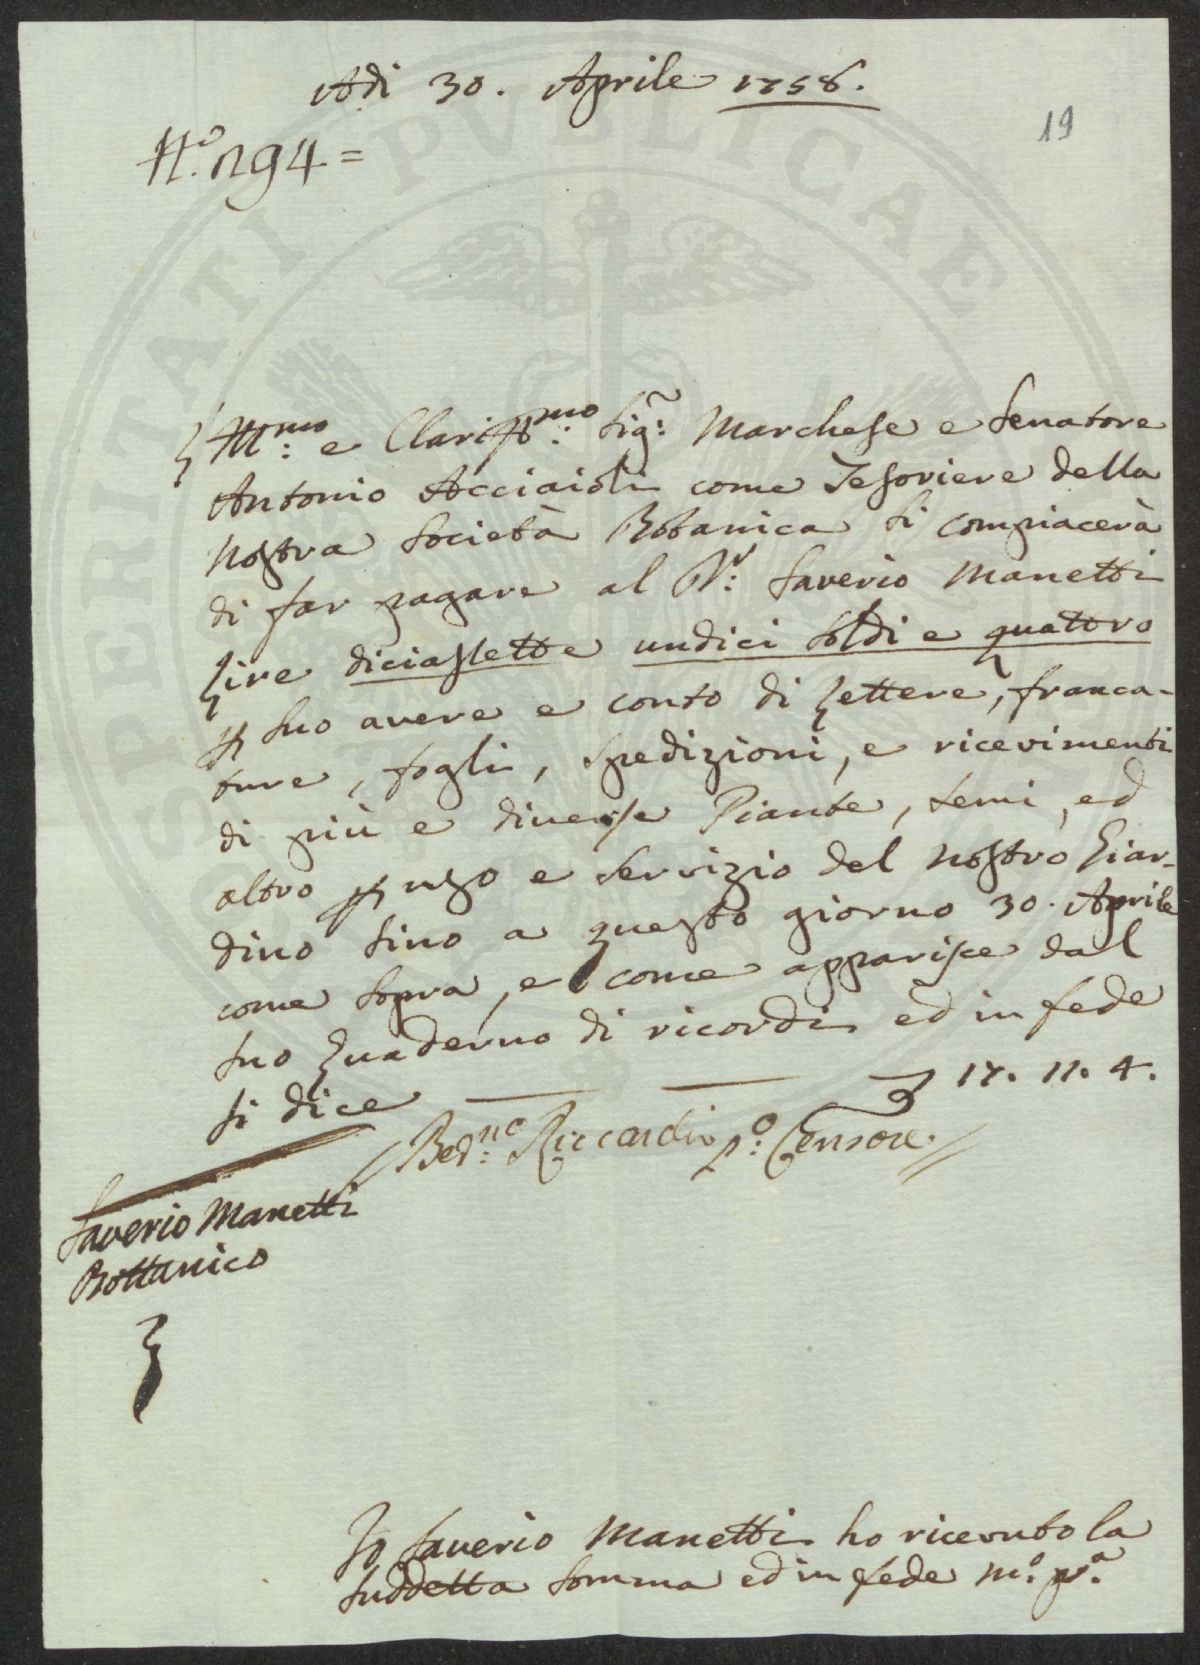 Adì 30. Aprile 1758.
19
N.º 294=
Ill.mo e Clariss.mo Sig.r Marchese e Senatore
Antonio Acciaioli come Tesoriere della
nostra Società Botanica si compiacerà
di far pagare al D.r Saverio Manetti
Lire diciassette undici soldi e quattro
p suo avere e conto di Lettere, franca-
ture, fogli, spedizioni, e ricevimenti
di più e diverse Piante, semi, ed
altro p uso e servizio del nostro Giar-
dino sino a questo giorno 30. Aprile
come sopra, e come apparisce dal
suo Quaderno di ricordi ed in fede
si dice 17. 11. 4.
Bed.no Riccardi p.º Censore
Saverio Manetti
Bottanico
Io Saverio Manetti ho ricevuto la
suddetta somma ed in fede m.º p.a
SPERITATI PVBLICAE